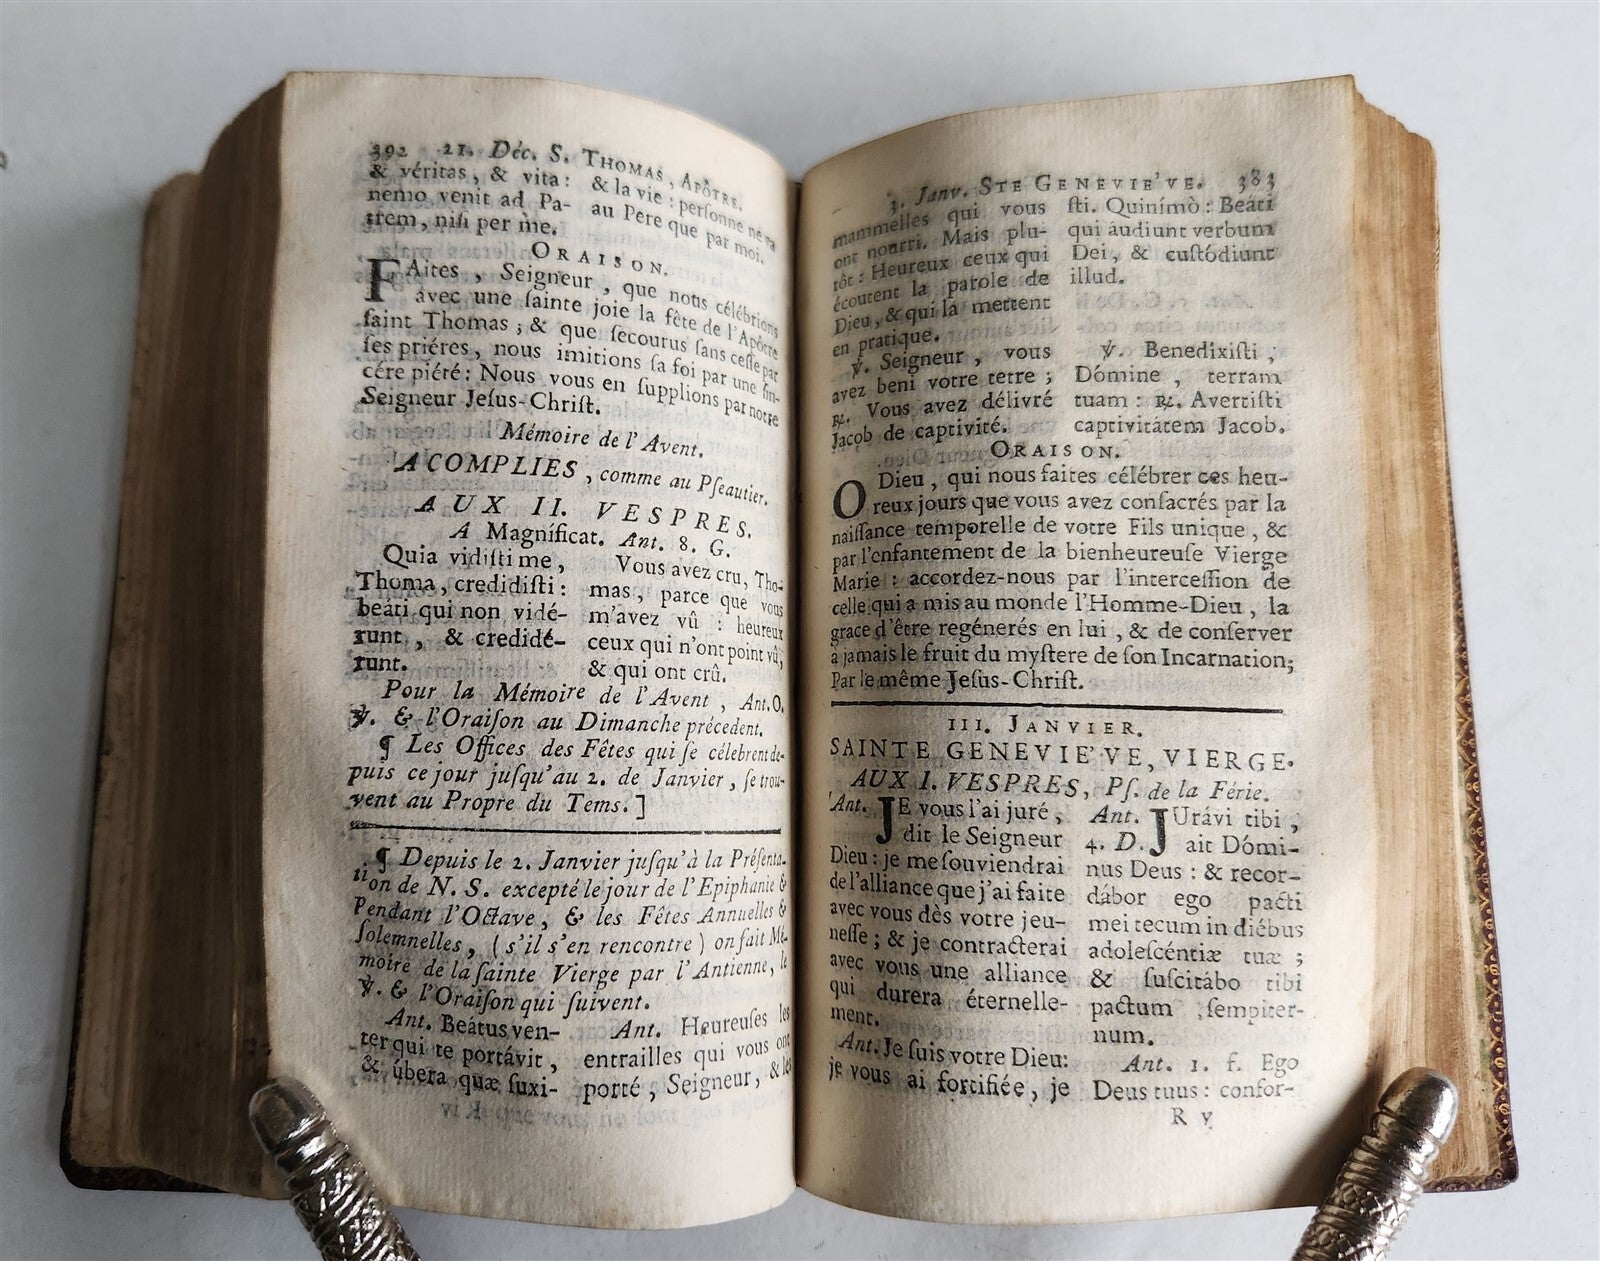 392 21. Déc. S. THOMAS, APÔTRE.
& véritas, & vita:
nemo venit ad Pa-
trem, nisi per me.
& la vie : personne ne va
au Pere que par moi.
ORAISON.
FAites, Seigneur, que nous célébrions
avec une sainte joie la fête de l'Apôtre
saint Thomas; & que secourus sans cesse par
ses priéres, nous imitions sa foi par une sin-
cére piété: Nous vous en supplions par notre
Seigneur Jesus-Christ.
Mémoire de l'Avent.
A COMPLIES, comme au Pseautier.
AUX II. VESPRES.
A Magníficat. Ant. 8. G.
Quia vidisti me,
Thoma, credidisti:
beáti qui non vidé-
runt, & credidé-
runt.
Vous avez cru, Tho-
mas, parce que vous
m'avez vû : heureux
ceux qui n'ont point vû,
& qui ont crû.
Pour la Mémoire de l'Avent, Ant. O.
℣. & l'Oraison au Dimanche précedent.
¶ Les Offices des Fêtes qui se célebrent de-
puis ce jour jusqu'au 2. de Janvier, se trou-
vent au Propre du Tems.]
¶ Depuis le 2. Janvier jusqu'à la Présenta-
tion de N. S. excepté le jour de l'Epiphanie &
Pendant l'Octave, & les Fêtes Annuelles &
solemnelles, (s'il s'en rencontre) on fait Mé-
moire de la sainte Vierge par l'Antienne, le
℣. & l'Oraison qui suivent.
Ant. Beátus ven-
ter qui te portávit,
& úbera quæ suxi-
Ant. Heureuses les
entrailles qui vous ont
porté, Seigneur, & les
3. Janv. STE GENEVIE'VE. 383
mammelles qui vous
ont nourri. Mais plu-
tôt : Heureux ceux qui
écoutent la parole de
Dieu, & qui la mettent
en pratique.
℣. Seigneur, vous
avez beni votre terre;
℟. Vous avez délivré
Jacob de captivité.
sti. Quinímò : Beáti
qui áudiunt verbum
Dei, & custódiunt
illud.
℣. Benedixisti,
Dómine, terram
tuam : ℟. Avertisti
captivitátem Jacob.
ORAISON.
O Dieu, qui nous faites célébrer ces heu-
reux jours que vous avez consacrés par la
naissance temporelle de votre Fils unique, &
par l'enfantement de la bienheureuse Vierge
Marie : accordez-nous par l'intercession de
celle qui a mis au monde l'Homme-Dieu, la
grace d'être regénerés en lui, & de conserver
à jamais le fruit du mystere de son Incarnation;
Par le même Jesus-Christ.
III. JANVIER.
SAINTE GENEVIE'VE, VIERGE.
AUX I. VESPRES, Ps. de la Férie.
Ant. JE vous l'ai juré,
dit le Seigneur
Dieu : je me souviendrai
de l'alliance que j'ai faite
avec vous dès votre jeu-
nesse; & je contracterai
avec vous une alliance
qui durera éternelle-
ment.
Ant. Je suis votre Dieu:
je vous ai fortifiée, je
Ant. JUrávi tibi,
4. D. ait Dómi-
nus Deus : & recor-
dábor ego pacti
mei tecum in diébus
adolescéntiæ tuæ;
& suscitábo tibi
pactum sempiter-
num.
Ant. 1. f. Ego
Deus tuus : confor-
R v